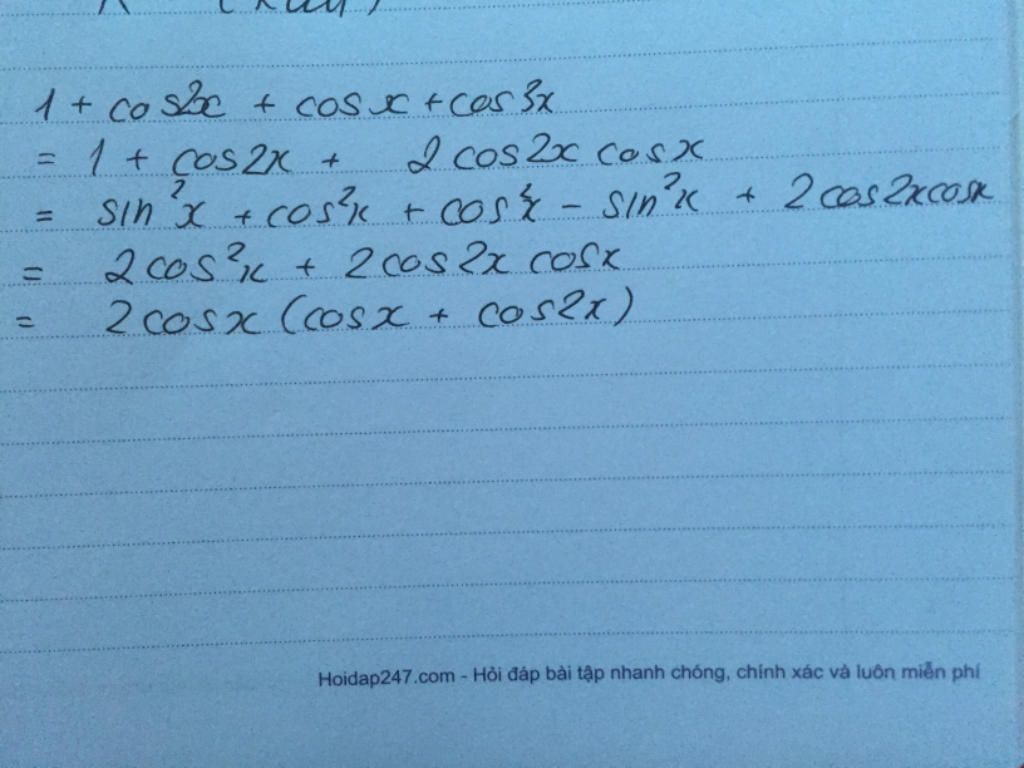 1 + cos2x + cosx + cos3x
= 1 + cos2x + 2cos2x cosx
= sin²x + cos²x + cos²x - sin²x + 2cos2xcosx
= 2cos²x + 2cos2x cosx
= 2cosx (cosx + cos2x)
Hoidap247.com - Hỏi đáp bài tập nhanh chóng, chính xác và luôn miễn phí